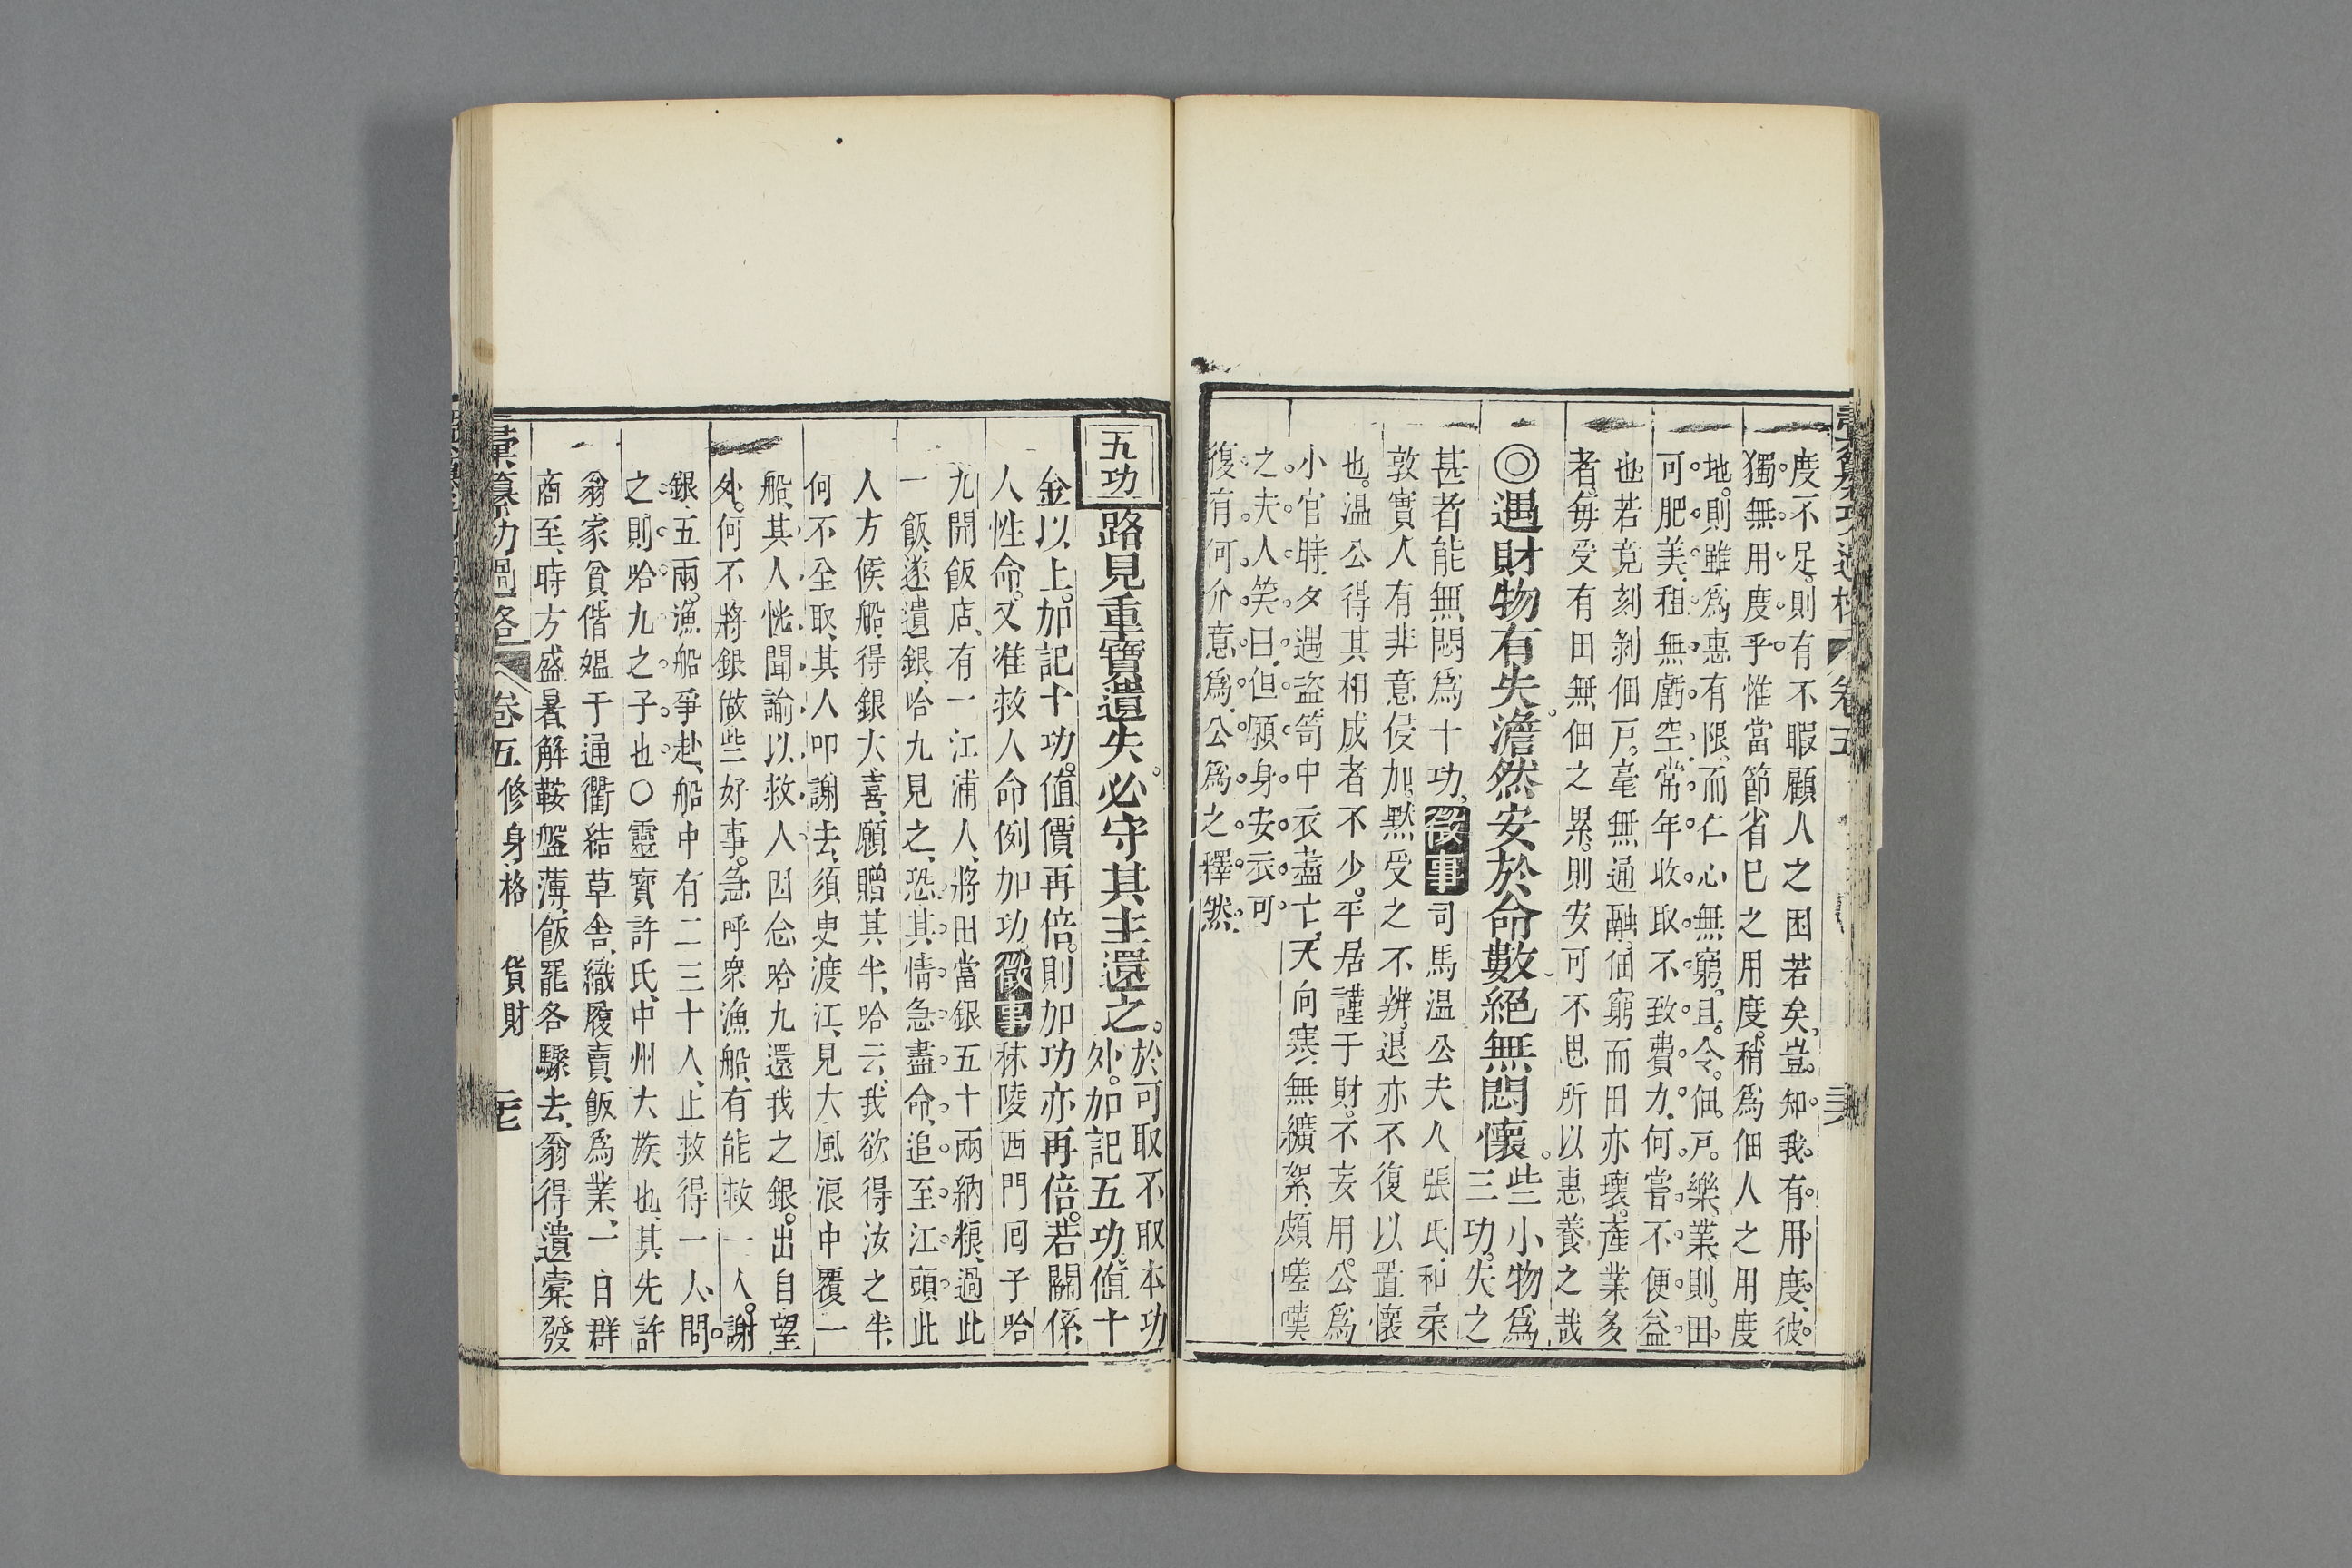 度不足。則有不暇顧人之困若矣。豈知我有用度。彼
獨無用度乎。惟當節省已之用度。稍爲佃人之用度
地。則雖爲惠有限。而仁心無窮。且令佃戸樂業。則田
可肥美。租無虧空。常年收取。不致費力。何嘗不便益
也。若竟刻剝佃戸。毫無通融。佃窮而田亦壞。產業多
者。每受有田無佃之累。則安可不思所以惠養之哉
◎遇財物有失。澹然安於命數絕無悶懷。些小物爲
三功。失之
甚者能無悶爲十功。徵事司馬温公夫人張氏。和柔
敦實人有非意侵加。黙受之不辨。退亦不復以置懷
也。温公得其相成者不少。平居謹于財。不妄用。公爲
小官時。夕遇盜笥中衣葢亡。天向寒。無纊絮。頗嗟嘆
之。夫人笑曰。但願身安。衣可
復有。何介意爲。公爲之釋然。
五功 路見重寶遺失。必守其主還之。於可取不取本功
外。加記五功。値十
金以上。加記十功。値價再倍。則加功亦再倍。若關係
人性命。又准救人命例加功。徵事秣陵西門囘子哈
九開飯店、有一江浦人、將田當銀五十兩納糧、過此
一飯、遂遺銀、哈九見之、恐其情急盡命、追至江頭此
人方候船、得銀大喜、願贈其半、哈云、我欲得汝之半、
何不全取、其人叩謝去、須臾渡江、見大風浪中覆一
船、其人恍聞諭以救人因念哈九還我之銀。出自望
外。何不將銀做些好事。急呼衆漁船、有能救一人。謝
銀五兩。漁船爭赴、船中有二三十人、止救得一人、問
之則哈九之子也○靈寶許氏、中州大族也、其先許
翁家貧、偕媼于通衢結草舍、織履賣飯爲業、一日群
商至、時方盛暑、解鞍盤薄、飯罷各驟去、翁得遺橐發
彙纂功過格 卷五 修身格 貨財